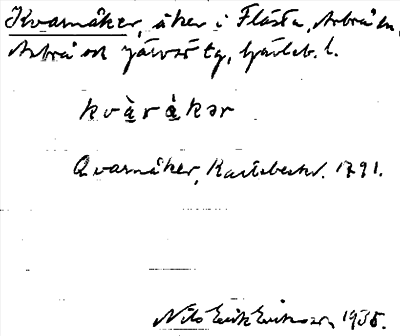 Kvarnåker, åker i Flästa, Arbrå sn,
Arbrå och Järvsö tg, Gävleb. l.
kvàràkər
Qvarnåker, Kartbeskr. 1791.
Nils Erik Eriksson, 1935.